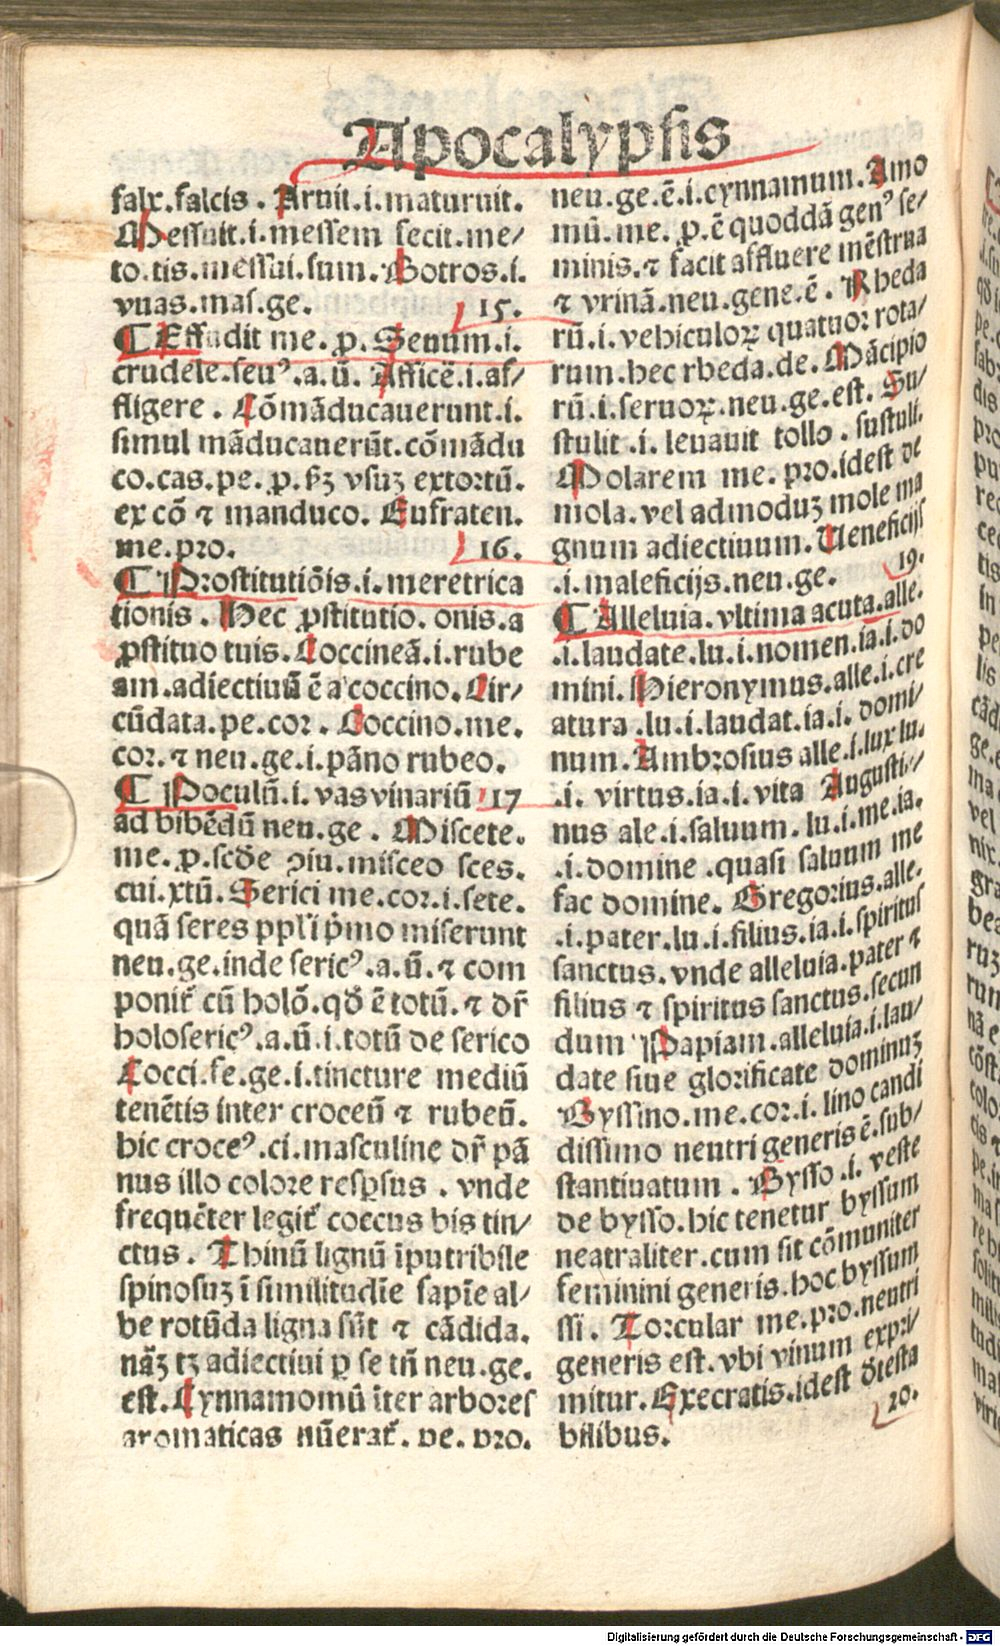 Apocalypsis
falx.falcis. Aruit.i.maturuit.
Messuit.i.messem fecit.me/
to.tis.messui.sum. Botros.i.
vuas.mas.ge. 15.
¶ Effudit me.ꝓ. Seuum.i.
crudele.seuꝰ.a.ū. Afficē.i.af/
fligere. Cōmāducauerunt.i.
simul māducauerūt.cōmādu
co.cas.pe.ꝓ.ßꝫ vsuꝫ extortū.
ex cō ⁊ manduco. Eufraten.
me.pro. 16.
¶ Prostitutiōis.i.meretrica
tionis. Hec ꝓstitutio.onis.a
ꝓstituo tuis. Coccineā.i.rube
am.adiectiuū ē a coccino. Cir/
cūdata.pe.cor. Coccino.me.
cor.⁊ neu.ge.i.pāno rubeo.
¶ Poculū.i.vas vinariū 17
ad bibēdū neu.ge. Miscete.
me.ꝓ.scḋe ꝯiu.misceo sces.
cui.xtū. Serici me.cor.i.sete.
quā seres ppl̄i p̄mo miserunt
neu.ge.inde sericꝰ.a.ū.⁊ com
ponit᷑ cū holō.qḋ ē totū.⁊ dr̄
holosericꝰ.a.ū.i.totū de serico
Cocci.se.ge.i.tincture mediū
tenētis inter croceū ⁊ rubeū.
hic croceꝰ.ci.masculine dr̄ pā
nus illo colore resꝑsus. vnde
frequēter legit᷑ coccus bis tin/
ctus. Thinū lignū īputribile
spinosuꝫ ī similitudīe sapīe al/
be rotūda ligna sūt ⁊ cādida.
nāꝫ tꝫ adiectiui ꝑ se tn̄ neu.ge.
est. Cynnamomū īter arbores
aromaticas nūerat᷑.pe.pro.
neu.ge.ē.i.cynnamum. Amo
mū.me.ꝓ.ē quoddā genꝰ se/
minis.⁊ facit affluere mēstrua
⁊ vrinā.neu.gene.ē. Rheda
rū.i.vehiculoꝝ quatuor rota/
rum.hec rheda.de. Mācipio
rū.i.seruoꝝ.neu.ge.est. Su/
stulit.i.leuauit tollo.sustuli.
Molarem me.pro.idest de
mola.vel admoduꝫ mole ma
gnum adiectiuum. Ueneficijs
.i.maleficijs.neu.ge. 19.
¶ Alleluia.vltima acuta.alle.
.i.laudate.lu.i.nomen.ia.i.do
mini. Hieronymus.alle.i.cre
atura.lu.i.laudat.ia.i.domi/
num. Ambrosius alle.i.lux lu.
.i.virtus.ia.i.vita Augusti/
nus ale.i.saluum.lu.i.me.ia.
.i.domine.quasi saluum me
fac domine. Gregorius.alle.
.i.pater.lu.i.filius.ia.i.spiritus
sanctus.vnde alleluia.pater ⁊
filius ⁊ spiritus sanctus.secun
dum Papiam.alleluia.i.lau/
date siue glorificate dominuꝫ
Byssino.me.cor.i.lino candi
dissimo neutri generis ē.sub/
stantiuatum. Bysso.i.veste
de bysso.hic tenetur byssum
neatraliter.cum sit cōmuniter
feminini generis.hoc byssum
ssi. Torcular me.pro.neutri
generis est.vbi vinum expri/
mitur. Execratis.idest ḋtesta
bilibus. 20.
Digitalisierung gefördert durch die Deutsche Forschungsgemeinschaft - DFG